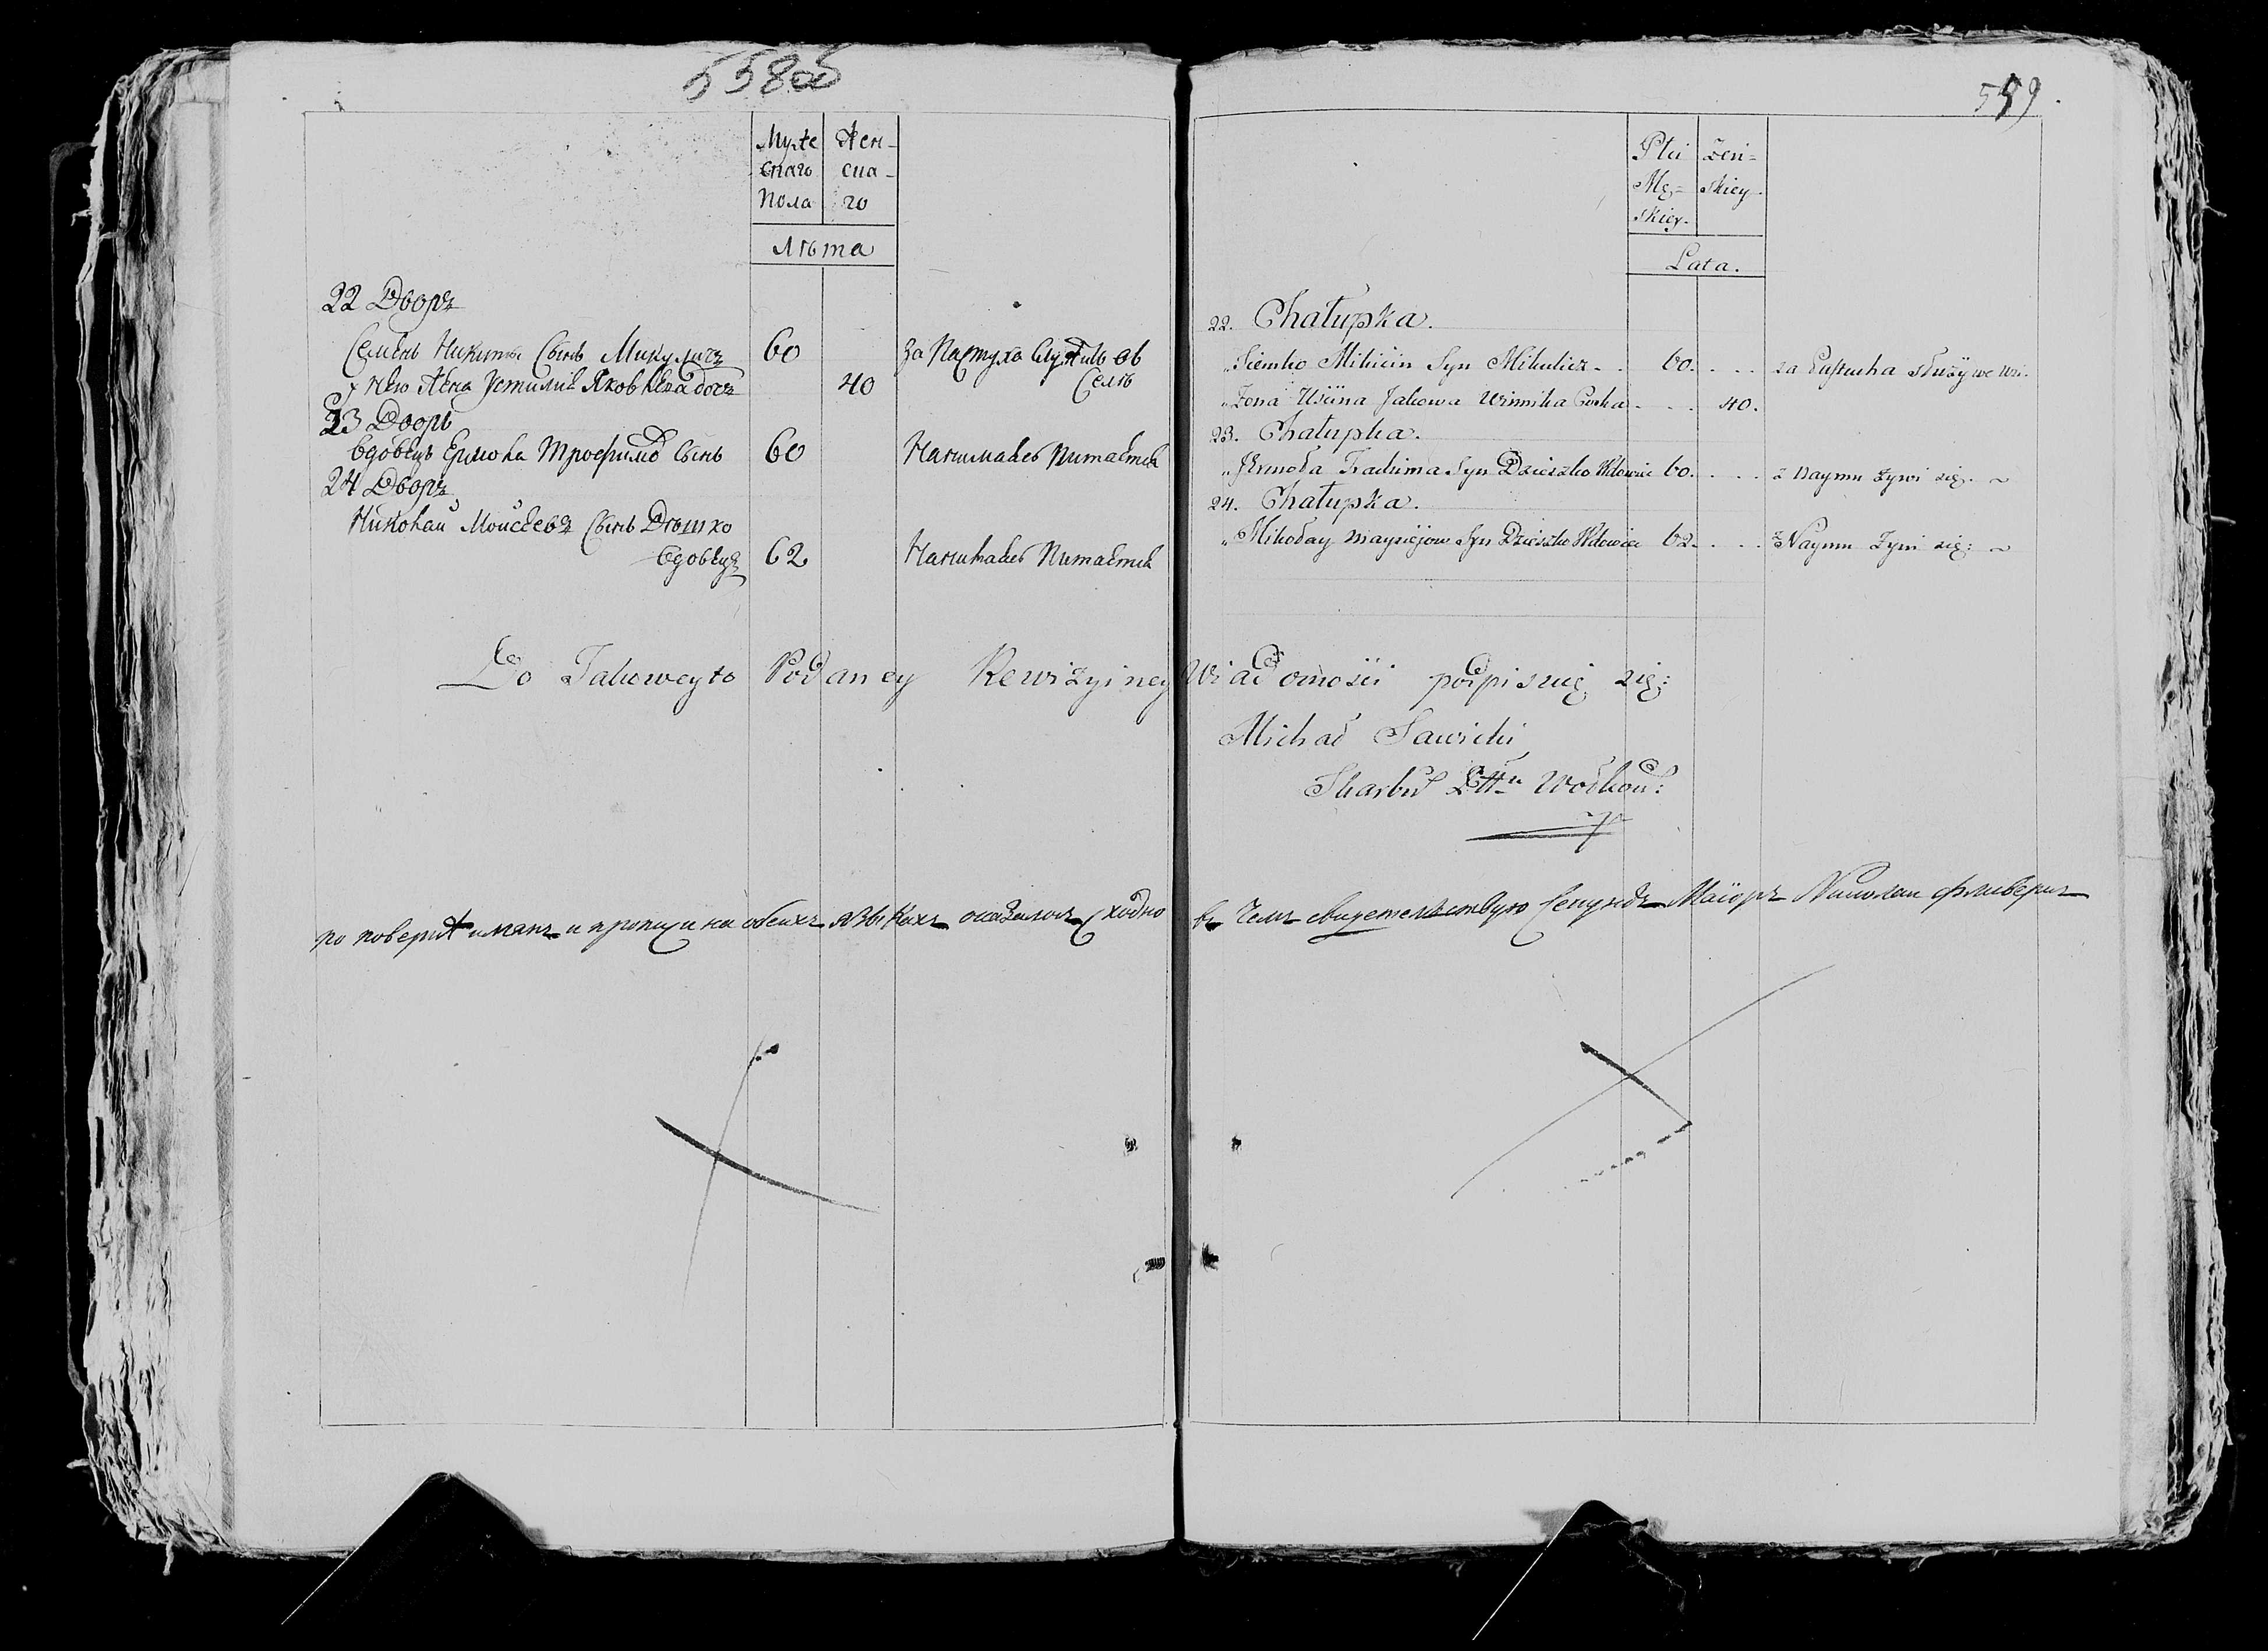 558 об
Муже Жен-
скаго ска-
Пола го
Лѣта
22 Дворъ
Семенъ Никиты Сынъ Микуличъ 60 За Пастуха Служитъ въ
Селѣ
У Него Жена Устимія Яковлева дочь 40
23 Дворъ
вдовецъ Ермола Трофимовъ Сынъ 60 Наниманемъ Питается
24 Дворъ
Николай Моисеевъ Сынъ Дѣшко
вдовецъ 62 Наниманемъ Питается
559
Płci Żeń-
Mę- skiey
skiey
Lata.
22. Chałupka.
Siemko Mikicin Syn Mikulicz 60. za Pastucha służy we wsi.
Żona Uścina Jakowa Córka 40.
23. Chałupka.
Jermoła Trachima Syn Dzieszko Wdowiec 60. z Naymu żywi się.
24. Chałupka.
Mikołay Maysiejow Syn Dzieszko Wdowiec 62. z Naymu żywi się:
Do Takoweyto Podaney Rewizyiney Wiadomości podpisuię się:
Michał Sawicki
Skarbu
по поверке и на обеихъ языкахъ оказалось Сходно въ чемъ свидетельствую Секундъ Маіоръ Николаи